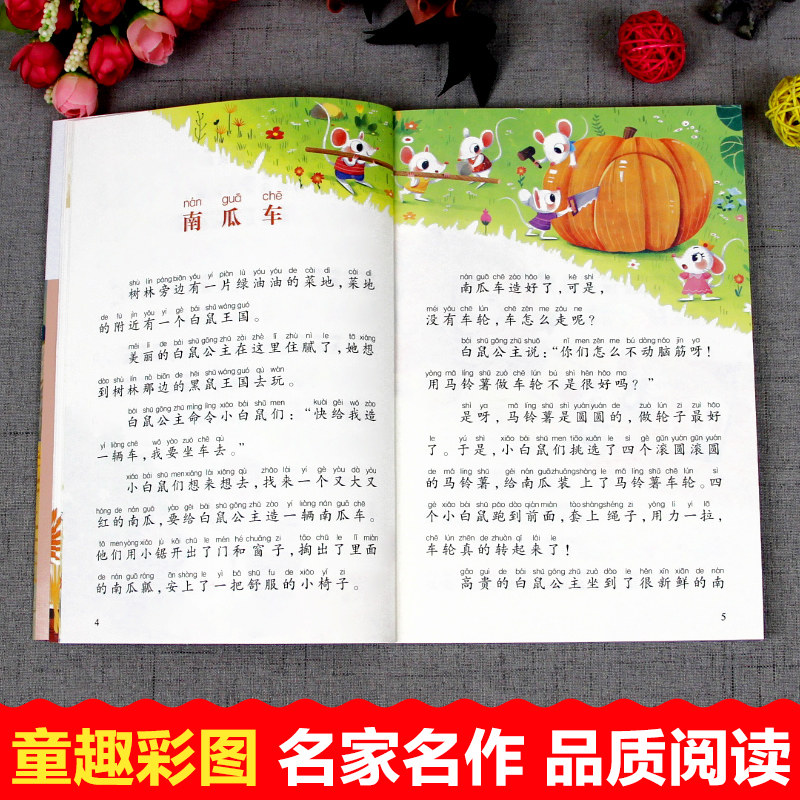 nán guā chē
南瓜车
shù lín páng biān yǒu yí piàn lǜ yóu yóu de cài dì cài dì
树林旁边有一片绿油油的菜地，菜地
de fù jìn yǒu yí gè bái shǔ wáng guó
的附近有一个白鼠王国。
měi lì de bái shǔ gōng zhǔ zài zhè lǐ zhù nì le tā xiǎng
美丽的白鼠公主在这里住腻了，她想
dào shù lín nà biān de hēi shǔ wáng guó qù wán
到树林那边的黑鼠王国去玩。
bái shǔ gōng zhǔ mìng lìng xiǎo bái shǔ men kuài gěi wǒ zào
白鼠公主命令小白鼠们：“快给我造
yí liàng chē wǒ yào zuò chē qù
一辆车，我要坐车去。”
xiǎo bái shǔ men xiǎng lái xiǎng qù zhǎo lái yí gè yòu dà yòu
小白鼠们想来想去，找来一个又大又
hóng de nán guā yào gěi bái shǔ gōng zhǔ zào yí liàng nán guā chē
红的南瓜，要给白鼠公主造一辆南瓜车。
tā men yòng xiǎo jù kāi chū le mén hé chuāng zi tāo chū le lǐ miàn
他们用小锯开出了门和窗子，掏出了里面
de nán guā ráng ān shàng le yì bǎ shū fu de xiǎo yǐ zi
的南瓜瓤，安上了一把舒服的小椅子。
4
nán guā chē zào hǎo le kě shì
南瓜车造好了，可是，
méi yǒu chē lún chē zěn me zǒu ne
没有车轮，车怎么走呢？
bái shǔ gōng zhǔ shuō nǐ men zěn me bú dòng nǎo jīn ya
白鼠公主说：“你们怎么不动脑筋呀！
yòng mǎ líng shǔ zuò chē lún bú shì hěn hǎo ma
用马铃薯做车轮不是很好吗？”
shì ya mǎ líng shǔ shì yuán yuán de zuò lún zi zuì hǎo
是呀，马铃薯是圆圆的，做轮子最好
le yú shì xiǎo bái shǔ men tiāo xuǎn le sì gè gǔn yuán gǔn yuán
了。于是，小白鼠们挑选了四个滚圆滚圆
de mǎ líng shǔ gěi nán guā zhuāng shàng le mǎ líng shǔ chē lún sì
的马铃薯，给南瓜装上了马铃薯车轮。四
gè xiǎo bái shǔ pǎo dào qián miàn tào shàng shéng zi yòng lì yì lā
个小白鼠跑到前面，套上绳子，用力一拉，
chē lún zhēn de zhuàn qǐ lái le
车轮真的转起来了！
gāo guì de bái shǔ gōng zhǔ zuò dào le hěn xīn xiān de nán
高贵的白鼠公主坐到了很新鲜的南
5
童趣彩图 名家名作 品质阅读